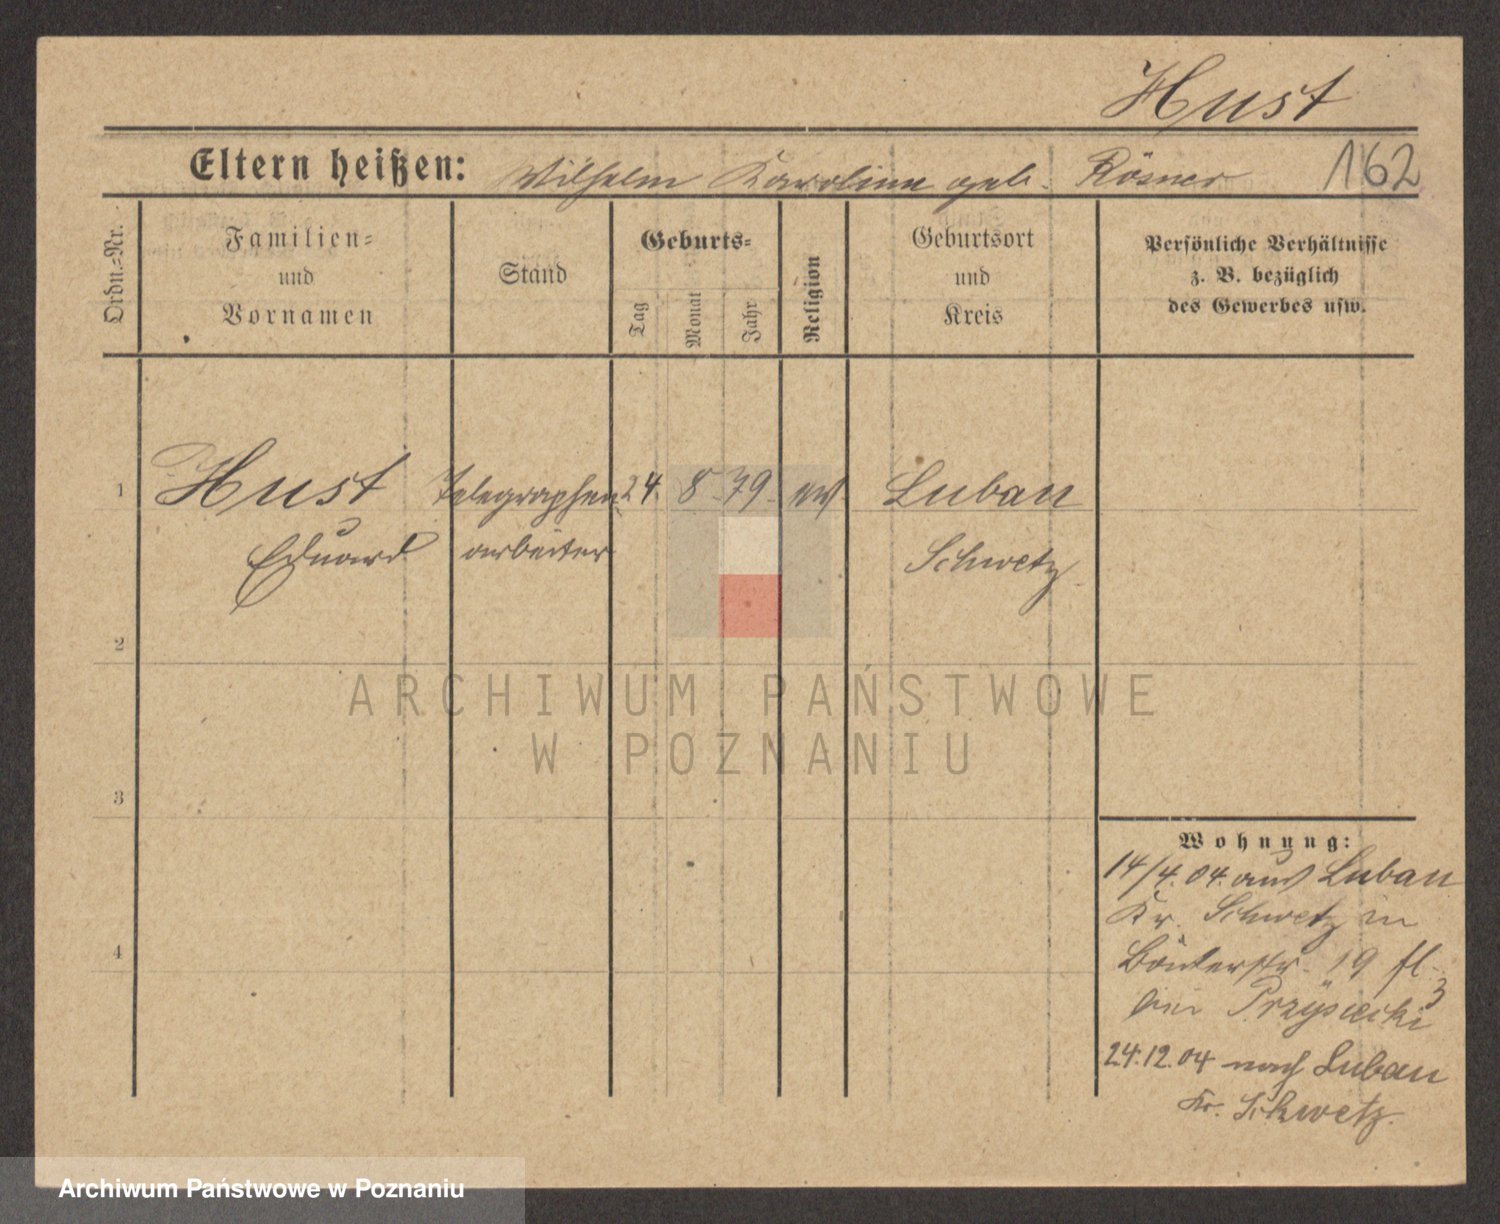 Hust
Eltern heißen: Wilhelm Karoline geb. Rösner 162
Ordn.-Nr.
Familien-
und
Vornamen
Stand
Geburts-
Tag
Monat
Jahr
Religion
Geburtsort
und
Kreis
Persönliche Verhältnisse
z. B. bezüglich
des Gewerbes usw.
1 Hust Telegraphen 24. 8. 79. ev. Luban
Eduard arbeiter Schwetz
2
ARCHIWUM PAŃSTWOWE
W POZNANIU
3
Wohnung:
14/4. 04. aus Luban
Kr. Schwetz in
4
19 fl. 3
bei Przysiecki
24.12.04 nach Luban
Kr. Schwetz.
Archiwum Państwowe w Poznaniu